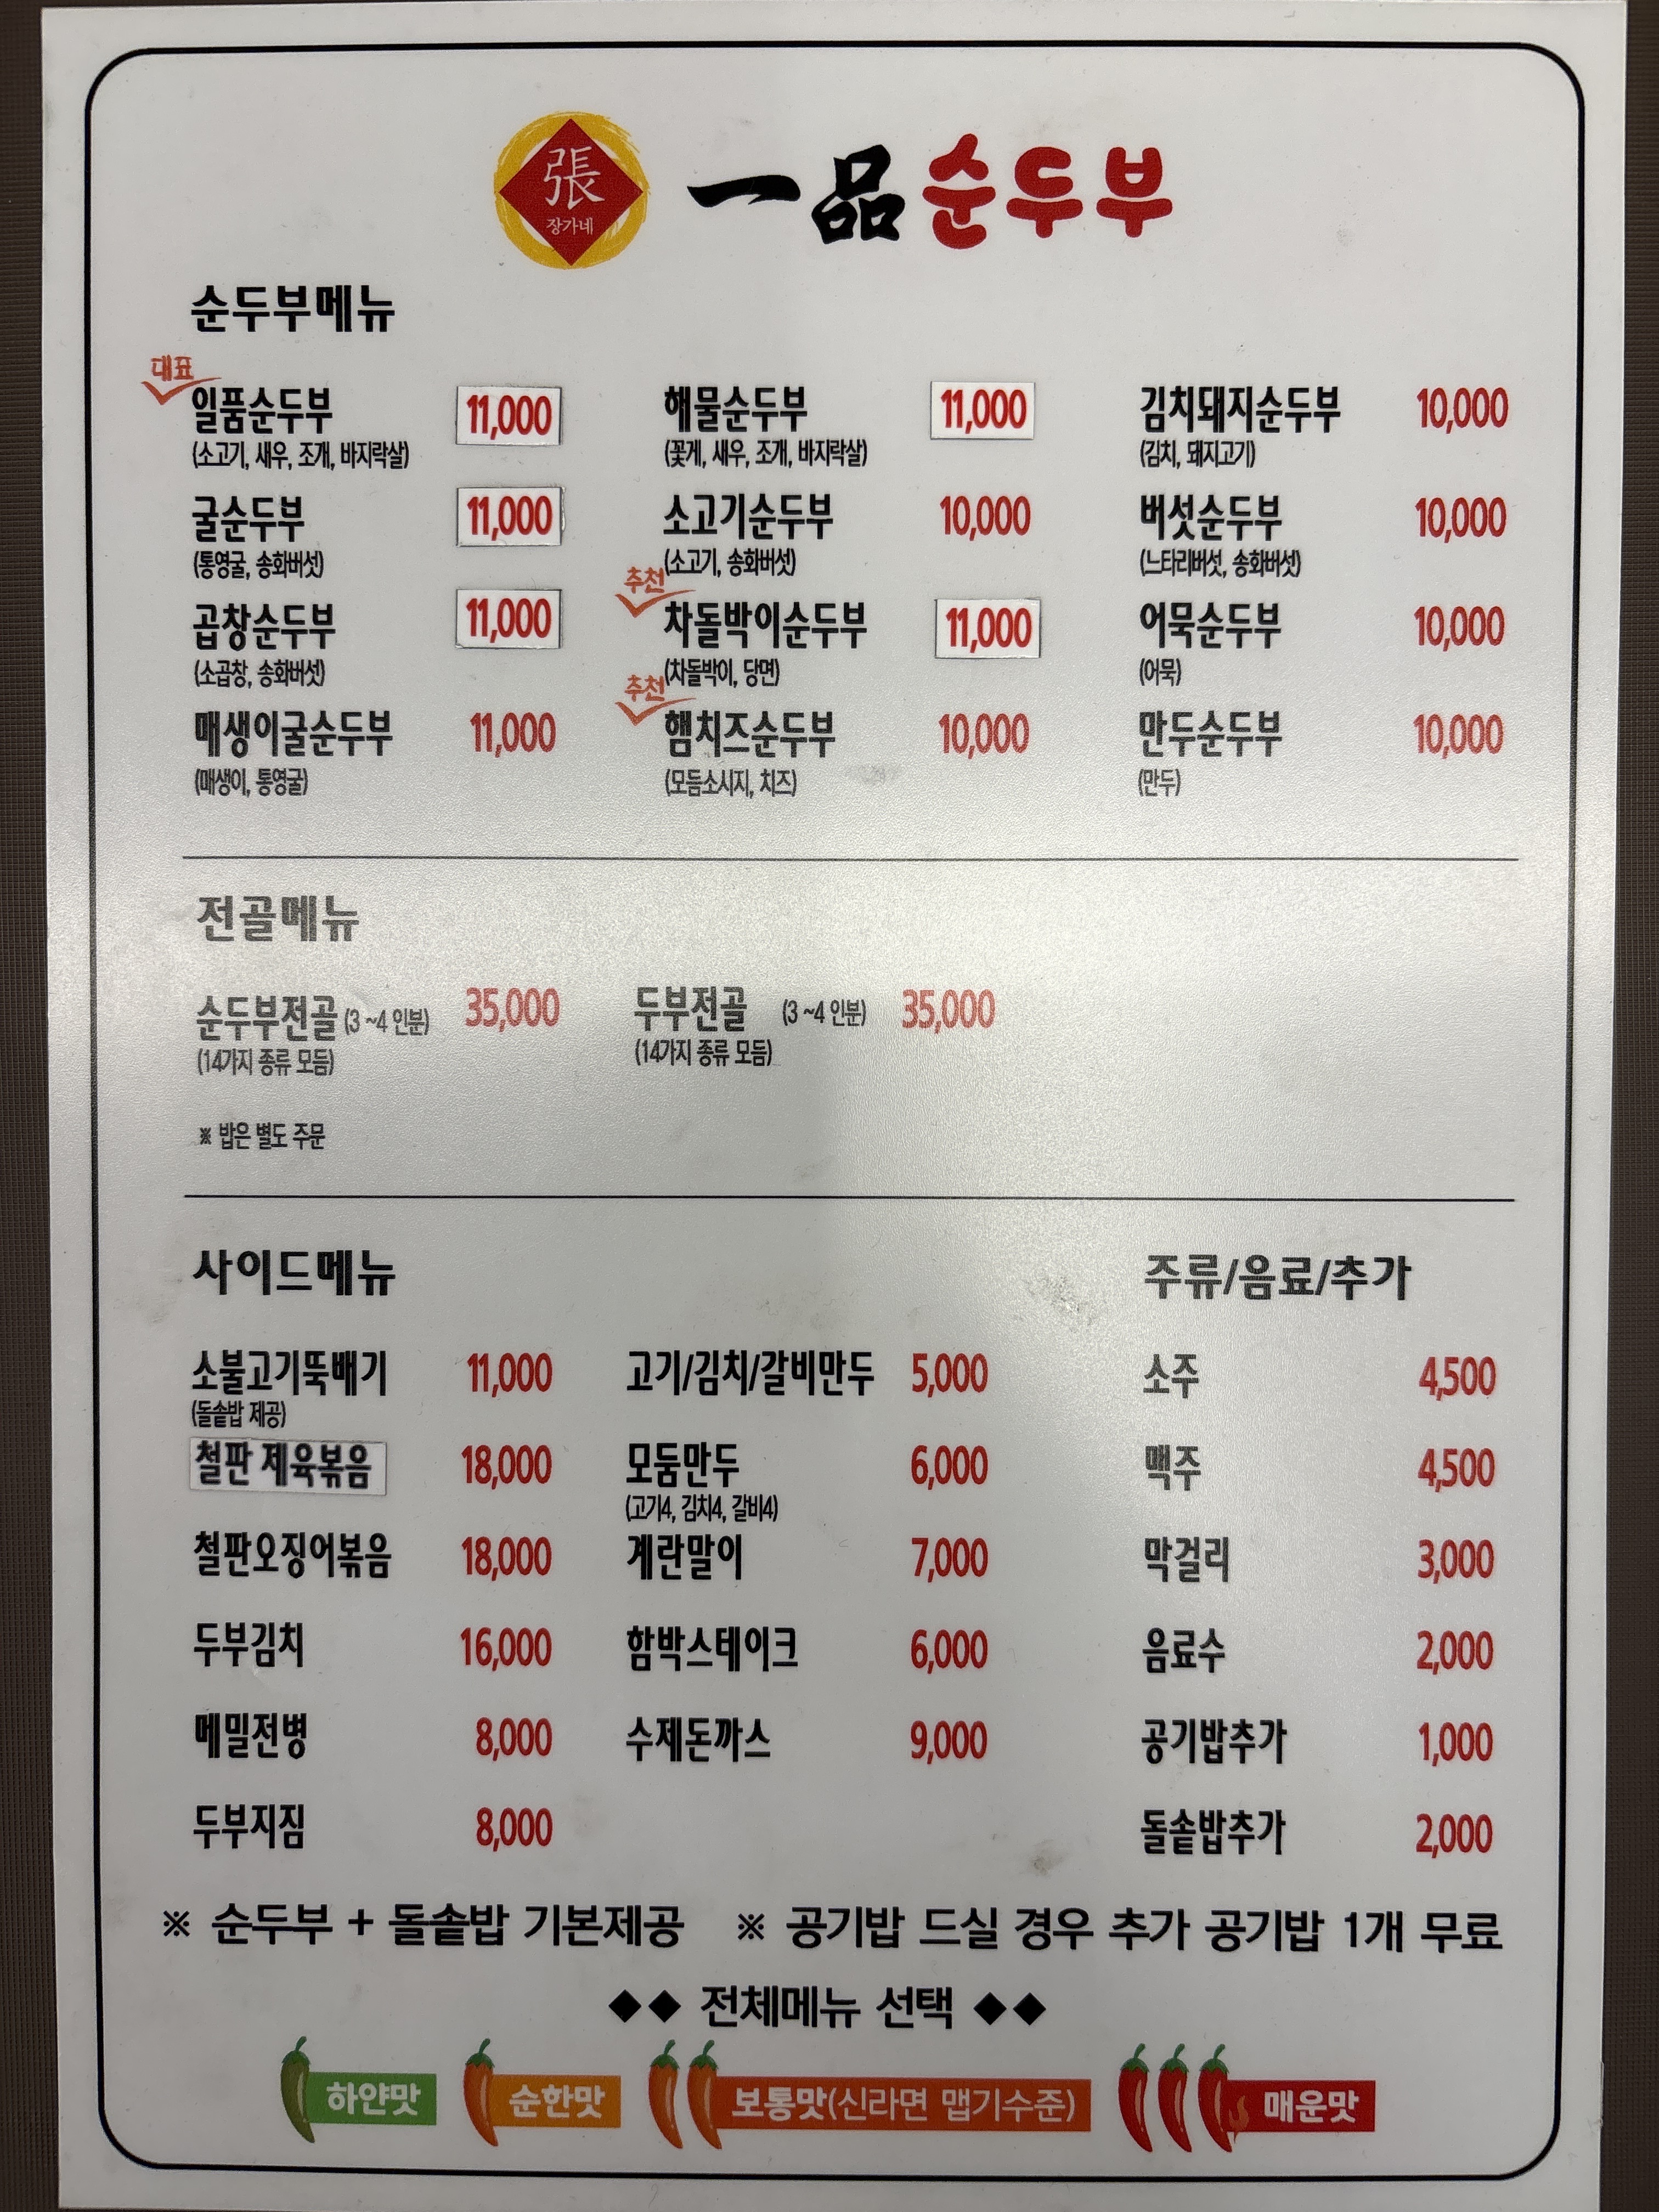 張
장가네
一品순두부
순두부메뉴
대표
일품순두부 11,000
(소고기, 새우, 조개, 바지락살)
굴순두부 11,000
(통영굴, 송화버섯)
곱창순두부 11,000
(소곱창, 송화버섯)
매생이굴순두부 11,000
(매생이, 통영굴)
해물순두부 11,000
(꽃게, 새우, 조개, 바지락살)
소고기순두부 10,000
(소고기, 송화버섯)
추천
차돌박이순두부 11,000
(차돌박이, 당면)
추천
햄치즈순두부 10,000
(모듬소시지, 치즈)
김치돼지순두부 10,000
(김치, 돼지고기)
버섯순두부 10,000
(느타리버섯, 송화버섯)
어묵순두부 10,000
(어묵)
만두순두부 10,000
(만두)
전골메뉴
순두부전골 (3 ~4 인분) 35,000
(14가지 종류 모듬)
두부전골 (3 ~4 인분) 35,000
(14가지 종류 모듬)
※ 밥은 별도 주문
사이드메뉴
소불고기뚝배기 11,000
(돌솥밥 제공)
철판 제육볶음 18,000
철판오징어볶음 18,000
두부김치 16,000
메밀전병 8,000
두부지짐 8,000
고기/김치/갈비만두 5,000
모둠만두 6,000
(고기4, 김치4, 갈비4)
계란말이 7,000
함박스테이크 6,000
수제돈까스 9,000
주류/음료/추가
소주 4,500
맥주 4,500
막걸리 3,000
음료수 2,000
공기밥추가 1,000
돌솥밥추가 2,000
※ 순두부 + 돌솥밥 기본제공 ※ 공기밥 드실 경우 추가 공기밥 1개 무료
◆◆ 전체메뉴 선택 ◆◆
하얀맛 순한맛 보통맛(신라면 맵기수준) 매운맛